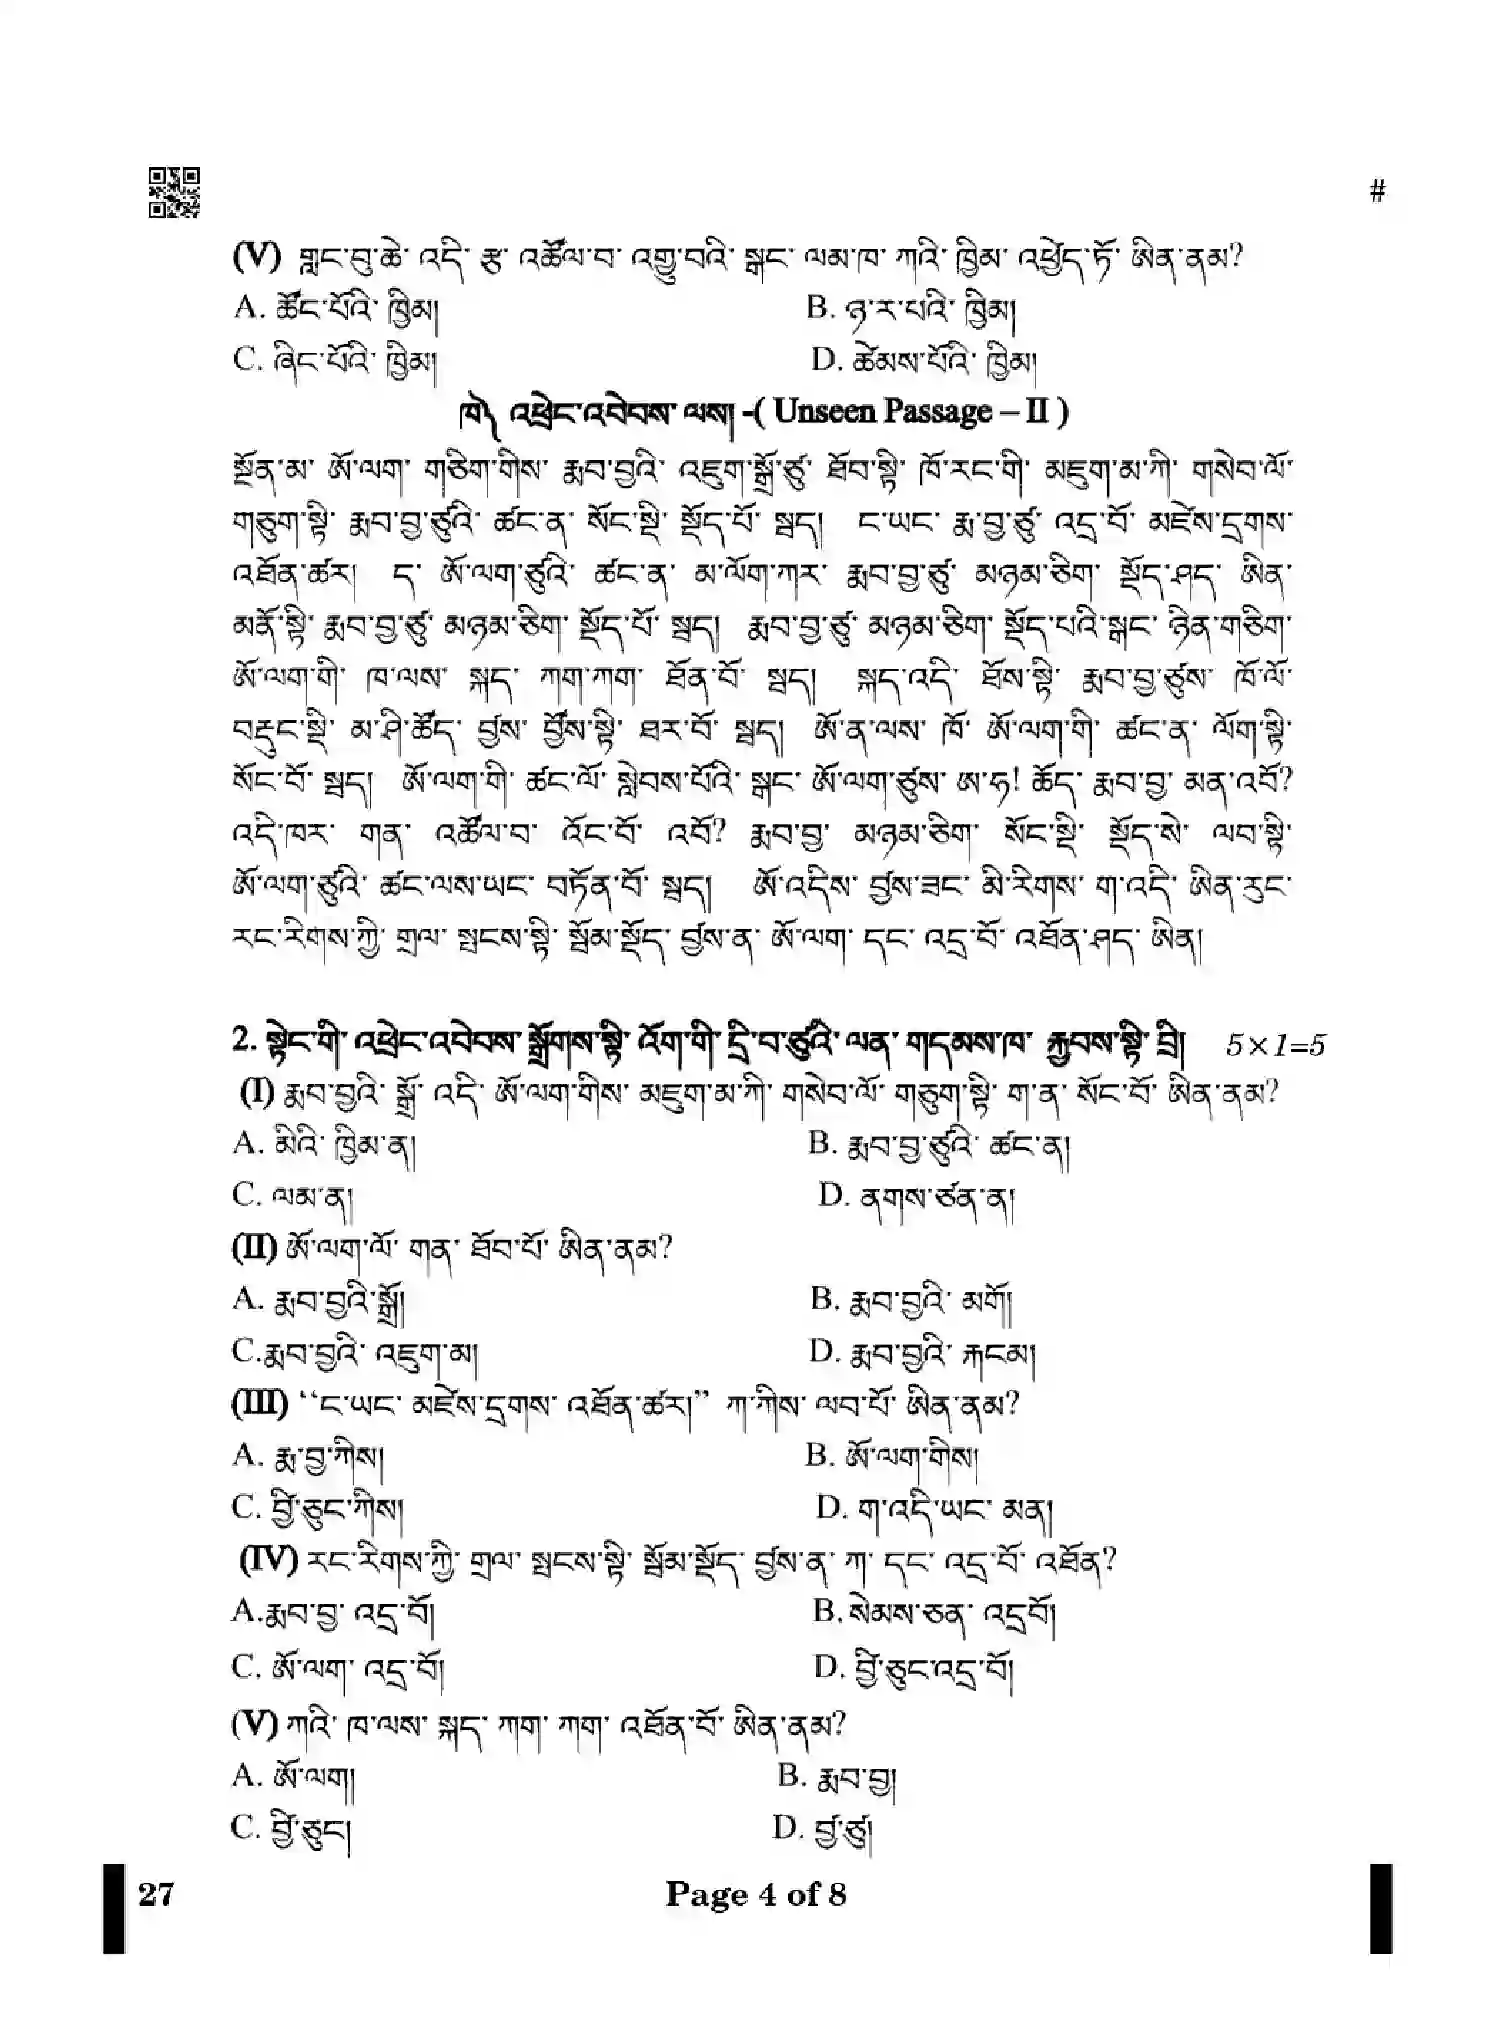 #
(V) གླང་བུ་ཆེ་ འདི་ རྩ་ འཚོལ་བ་ འགྱུ་བའི་ སྒང་ ལམ་ཁ་ ཀའི་ ཁྱིམ་ འཕྱེད་ཏོ་ ཨིན་ནམ?
A. ཚོང་པོའི་ ཁྱིམ།
B. ཉ་ར་པའི་ ཁྱིམ།
C. ཞིང་པོའི་ ཁྱིམ།
D. ཚེམས་པོའི་ ཁྱིམ།
ཁ༽ འཕྲེང་འབེབས་ ལས། -( Unseen Passage – II )
སྔོན་མ་ ཨོ་ལག་ གཅིག་གིས་ རྨབ་བྱའི་ འཇུག་སྒྲོ་ཙུ་ ཐོབ་སྟི་ ཁོ་རང་གི་ མཇུག་མ་ཀི་ གསེབ་ལོ་
གཅུག་སྟི་ རྨབ་བྱ་ཙུའི་ ཚང་ན་ སོང་སྡི་ སྡོད་པོ་ སྦད། ང་ཡང་ རྨ་བྱ་ཙུ་ འདྲ་བོ་ མཛེས་དྲགས་
འཐོན་ཚར། ད་ ཨོ་ལག་ཙུའི་ ཚང་ན་ མ་ལོག་ཀར་ རྨབ་བྱ་ཙུ་ མཉམ་ཅིག་ སྡོད་ཤད་ ཨིན་
མནོ་སྟི་ རྨབ་བྱ་ཙུ་ མཉམ་ཅིག་ སྡོད་པོ་ སྦད། རྨབ་བྱ་ཙུ་ མཉམ་ཅིག་ སྡོད་པའི་སྒང་ ཉིན་གཅིག་
ཨོ་ལག་གི་ ཁ་ལས་ སྐད་ ཀག་ཀག་ ཐོན་བོ་ སྦད། སྐད་འདི་ ཐོས་སྟི་ རྨབ་བྱ་ཙུས་ ཁོ་ལོ་
བརྡུང་སྡི་ མ་ཤི་ཚོད་ བྱས་ བྱོས་སྟི་ ཐར་བོ་ སྦད། ཨོ་ན་ལས་ ཁོ་ ཨོ་ལག་གི་ ཚང་ན་ ལོག་སྟི་
སོང་བོ་ སྦད། ཨོ་ལག་གི་ ཚང་ལོ་ སླེབས་པོའི་ སྒང་ ཨོ་ལག་ཙུས་ ཨ་ཧ! ཆོད་ རྨབ་བྱ་ མན་འབོ?
འདི་ཁར་ གན་ འཚོལ་བ་ འོང་བོ་ འབོ? རྨབ་བྱ་ མཉམ་ཅིག་ སོང་སྡི་ སྡོད་སེ་ ལབ་སྟི་
ཨོ་ལག་ཙུའི་ ཚང་ལས་ཡང་ བཏོན་བོ་ སྦད། ཨོ་འདིས་ བྱས་ཟང་ མི་རིགས་ ག་འདི་ ཨིན་རུང་
རང་རིགས་ཀྱི་ གྲལ་ སྤངས་སྟི་ སྦོམ་སྡོད་ བྱས་ན་ ཨོ་ལག་ དང་ འདྲ་བོ་ འཐོན་ཤད་ ཨིན།
2. སྟེང་གི་ འཕྲེང་འབེབས་ སྒྲོགས་སྟི་ འོག་གི་ དྲི་བ་ཙུའི་ ལན་ གདམས་ཁ་ རྐྱབས་སྟི་ བྲི། 5×1=5
(I) རྨབ་བྱའི་ སྒྲོ་ འདི་ ཨོ་ལག་གིས་ མཇུག་མ་ཀི་ གསེབ་ལོ་ གཅུག་སྟི་ ག་ན་ སོང་བོ་ ཨིན་ནམ?
A. མིའི་ ཁྱིམ་ན།
B. རྨབ་བྱ་ཙུའི་ ཚང་ན།
C. ལམ་ན།
D. ནགས་ཙན་ན།
(II) ཨོ་ལག་ལོ་ གན་ ཐོབ་པོ་ ཨིན་ནམ?
A. རྨབ་བྱའི་སྒྲོ།
B. རྨབ་བྱའི་ མགོ།
C.རྨབ་བྱའི་ འཇུག་མ།
D. རྨབ་བྱའི་ རྐངམ།
(III) “ང་ཡང་ མཛེས་དྲགས་ འཐོན་ཚར།” ཀ་ཀིས་ ལབ་པོ་ ཨིན་ནམ?
A. རྨ་བྱ་ཀིས།
B. ཨོ་ལག་གིས།
C. བྱི་ཅུང་ཀིས།
D. ག་འདི་ཡང་ མན།
(IV) རང་རིགས་ཀྱི་ གྲལ་ སྤངས་སྟི་ སྦོམ་སྡོད་ བྱས་ན་ ཀ་ དང་ འདྲ་བོ་ འཐོན?
A.རྨབ་བྱ་ འདྲ་བོ།
B. སེམས་ཅན་ འདྲབོ།
C. ཨོ་ལག་ འདྲ་བོ།
D. བྱི་ཅུང་འདྲ་བོ།
(V) ཀའི་ ཁ་ལས་ སྐད་ ཀག་ ཀག་ འཐོན་བོ་ ཨིན་ནམ?
A. ཨོ་ལག།
B. རྨབ་བྱ།
C. བྱི་ཅུང།
D. བྱ་ཙུ།
27 Page 4 of 8